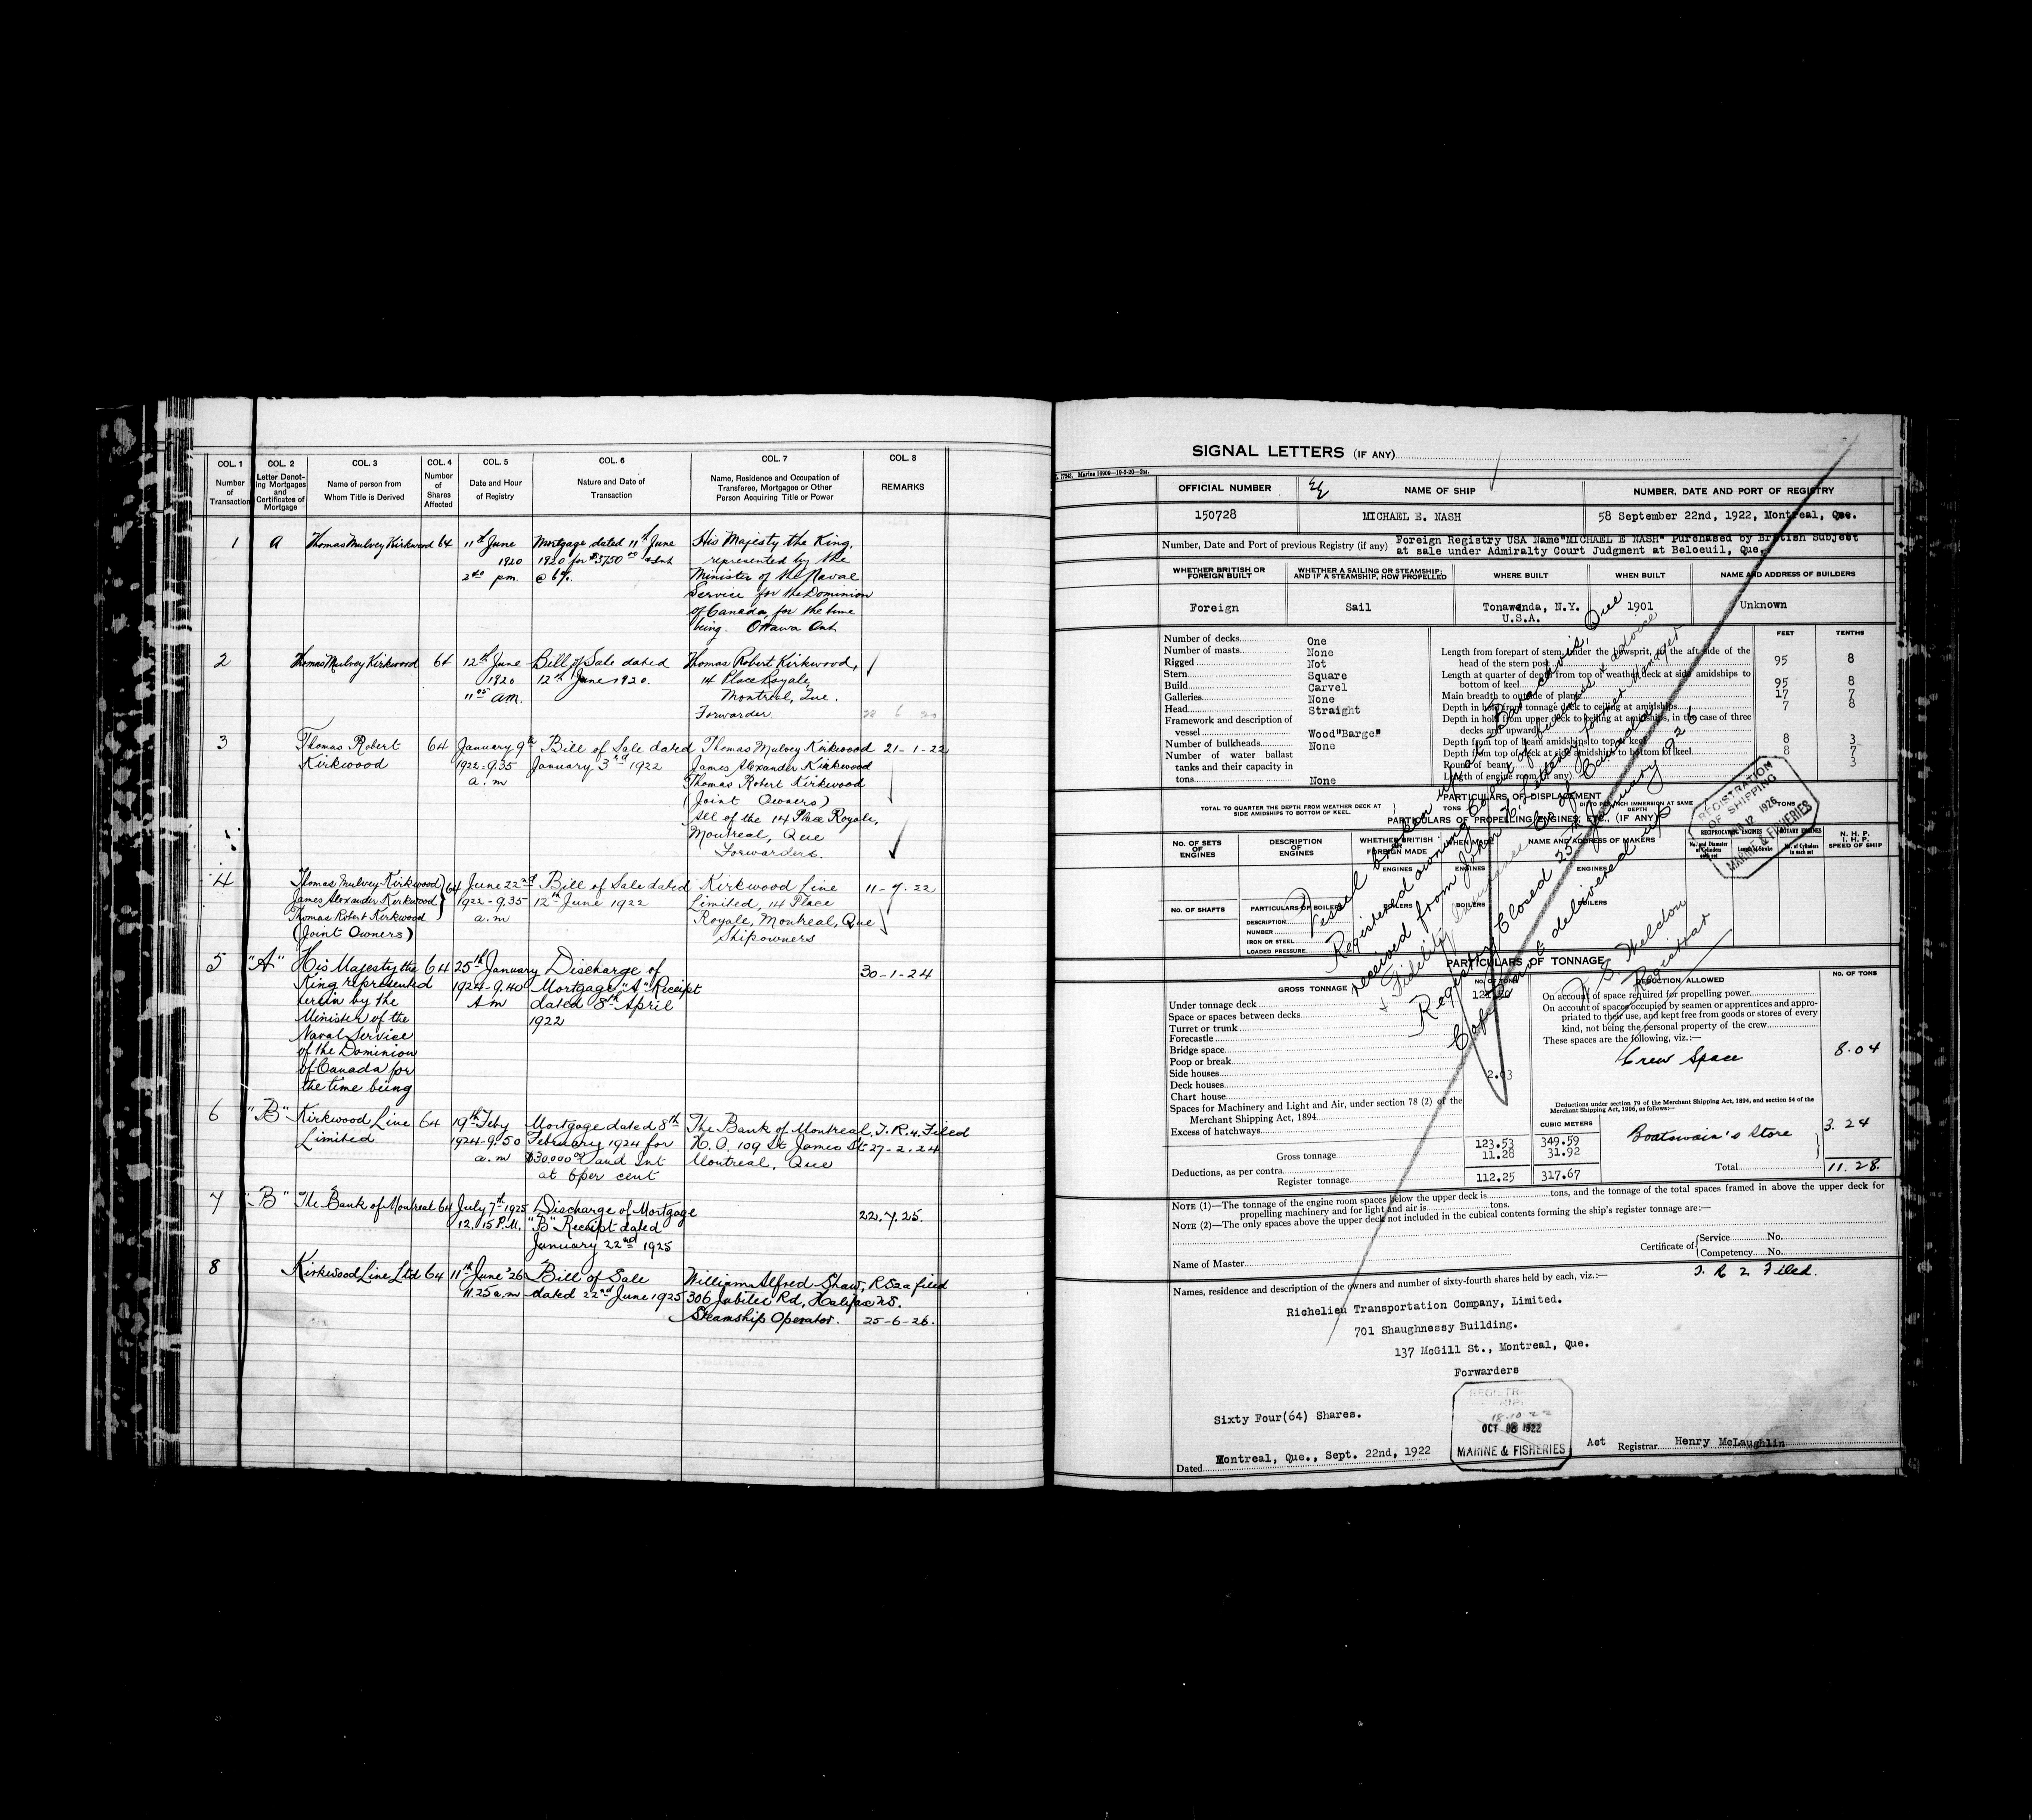 COL. 1 COL. 2 COL. 3 COL. 4 COL. 5 COL. 6 COL. 7 COL. 8
Number of Transaction
Letter Denoting Mortgages and Certificates of Mortgage
Name of person from Whom Title is Derived
Number of Shares Affected
Date and Hour of Registry
Nature and Date of Transaction
Name, Residence and Occupation of Transferee, Mortgagee or Other Person Acquiring Title or Power
REMARKS
1 A Thomas Mulvey Kirkwood 64 11th June Mortgage dated 11th June His Majesty the King,
1920 1920 for $3750.00 & Int represented by the
2 40 pm. @ 6%. Minister of the Naval
Service for the Dominion
of Canada, for the time
being. Ottawa Ont
2 Thomas Mulvey Kirkwood 64 12th June Bill of Sale dated Thomas Robert Kirkwood,
1920 12th June 1920. 14 Place Royale,
11 05 am. Montreal, Que.
Forwarder
3 Thomas Robert 64 January 9th Bill of Sale dated Thomas Mulvey Kirkwood 21-1-22
Kirkwood 1922-9.35 January 3rd 1922 James Alexander Kirkwood
a.m Thomas Robert Kirkwood
(Joint Owners)
All of the 14 Place Royale,
Montreal, Que
Forwarders.
4 Thomas Mulvey Kirkwood 64 June 22nd Bill of Sale dated Kirkwood Line 11-7.22
James Alexander Kirkwood 1922-9.35 12th June 1922 Limited, 14 Place
Thomas Robert Kirkwood a.m Royale, Montreal, Que
(Joint Owners) Shipowners
5 "A" His Majesty the 64 25th January Discharge of 30-1-24
King represented 1924-9.40 Mortgage "A" Receipt
herein by the A m dated 8th April
Minister of the 1922
Naval Service
of the Dominion
of Canada for
the time being
6 "B" Kirkwood Line 64 19th Feby Mortgage dated 8th The Bank of Montreal, T.R.4. Filed
Limited 1924-9.50 February 1924 for H.O. 109 St James St 27-2.24
a.m $30,000.00 and Int Montreal, Que
at 6 per cent
7 "B" The Bank of Montreal 64 July 7th 1925 Discharge of Mortgage 22.7.25.
12.15 P.M. "B" Receipt dated
January 22nd 1925
8 Kirkwood Line Ltd 64 11th June '26 Bill of Sale William Alfred Shaw, RS2a filed
11.25 a.m dated 22nd June 1925 306 Jubilee Rd, Halifax N.S.
Steamship Operator. 25-6-26.
SIGNAL LETTERS (IF ANY)
77243. Marine 16909—19-3-20—2M.
OFFICIAL NUMBER NAME OF SHIP NUMBER, DATE AND PORT OF REGISTRY
150728 MICHAEL E. NASH 58 September 22nd, 1922, Montreal, Que.
Number, Date and Port of previous Registry (if any) Foreign Registry USA Name"MICHAEL E NASH" Purchased by British Subject
at sale under Admiralty Court Judgment at Beloeuil, Que.
WHETHER BRITISH OR FOREIGN BUILT
WHETHER A SAILING OR STEAMSHIP; AND IF A STEAMSHIP, HOW PROPELLED
WHERE BUILT WHEN BUILT NAME AND ADDRESS OF BUILDERS
Foreign Sail Tonawanda, N.Y. 1901 Unknown
U.S.A.
FEET TENTHS
Number of decks One
Number of masts None
Rigged Not
Stern Square
Build Carvel
Galleries None
Head Straight
Framework and description of
vessel Wood"Barge"
Number of bulkheads None
Number of water ballast
tanks and their capacity in
tons None
Length from forepart of stem, under the bowsprit, to the aft side of the
head of the stern post 95 8
Length at quarter of depth from top of weather deck at side amidships to
bottom of keel 95 8
Main breadth to outside of plank 17 7
Depth in hold from tonnage deck to ceiling at amidships 7 8
Depth in hold from upper deck to ceiling at amidships, in the case of three
decks and upwards
Depth from top of beam amidships to top of keel 8 3
Depth from top of deck at side amidships to bottom of keel 8 7
Round of beam 3
Length of engine room (if any)
PARTICULARS OF DISPLACEMENT
TOTAL TO QUARTER THE DEPTH FROM WEATHER DECK AT SIDE AMIDSHIPS TO BOTTOM OF KEEL. TONS DITTO PER INCH IMMERSION AT SAME DEPTH TONS
PARTICULARS OF PROPELLING ENGINES, ETC. (IF ANY)
NO. OF SETS OF ENGINES
DESCRIPTION OF ENGINES
WHETHER BRITISH OR FOREIGN MADE
WHEN MADE
NAME AND ADDRESS OF MAKERS
RECIPROCATING ENGINES
ROTARY ENGINES
N. H. P.
I. H. P.
SPEED OF SHIP
ENGINES ENGINES ENGINES
NO. OF SHAFTS PARTICULARS OF BOILERS BOILERS BOILERS BOILERS
DESCRIPTION
NUMBER
IRON OR STEEL
LOADED PRESSURE
Vessel broken up at Barachois, Que
Registered owning
received from John
& Fidelity Insurance Co of Canada
Registry Closed 25th January 1926
Copy not delivered up
Weldon
Registrar
REGISTRATION OF SHIPPING
12 1926
MARINE & FISHERIES
PARTICULARS OF TONNAGE
GROSS TONNAGE NO. OF TONS DEDUCTION ALLOWED NO. OF TONS
Under tonnage deck
Space or spaces between decks
Turret or trunk
Forecastle
Bridge space
Poop or break
Side houses 2.03
Deck houses
Chart house
Spaces for Machinery and Light and Air, under section 78 (2) of the
Merchant Shipping Act, 1894
Excess of hatchways
On account of space required for propelling power
On account of spaces occupied by seamen or apprentices and appro-
priated to their use, and kept free from goods or stores of every
kind, not being the personal property of the crew
These spaces are the following, viz.:—
Crew Space 8.04
Deductions under section 79 of the Merchant Shipping Act, 1894, and section 54 of the
Merchant Shipping Act, 1906, as follows:—
CUBIC METERS
Boatswain's Store 3.24
Gross tonnage 123.53 349.59
Deductions, as per contra 11.28 31.92
Total 11.28.
Register tonnage 112.25 317.67
NOTE (1)—The tonnage of the engine room spaces below the upper deck is tons, and the tonnage of the total spaces framed in above the upper deck for
propelling machinery and for light and air is tons.
NOTE (2)—The only spaces above the upper deck not included in the cubical contents forming the ship's register tonnage are:—
Certificate of Service No.
Competency No.
Name of Master
T. R 2 Filed.
Names, residence and description of the owners and number of sixty-fourth shares held by each, viz.:—
Richelieu Transportation Company, Limited.
701 Shaughnessy Building.
137 McGill St., Montreal, Que.
Forwarders
Sixty Four(64) Shares.
OCT 1922
MARINE & FISHERIES
Dated Montreal, Que., Sept. 22nd, 1922 Act Registrar Henry McLaughlin